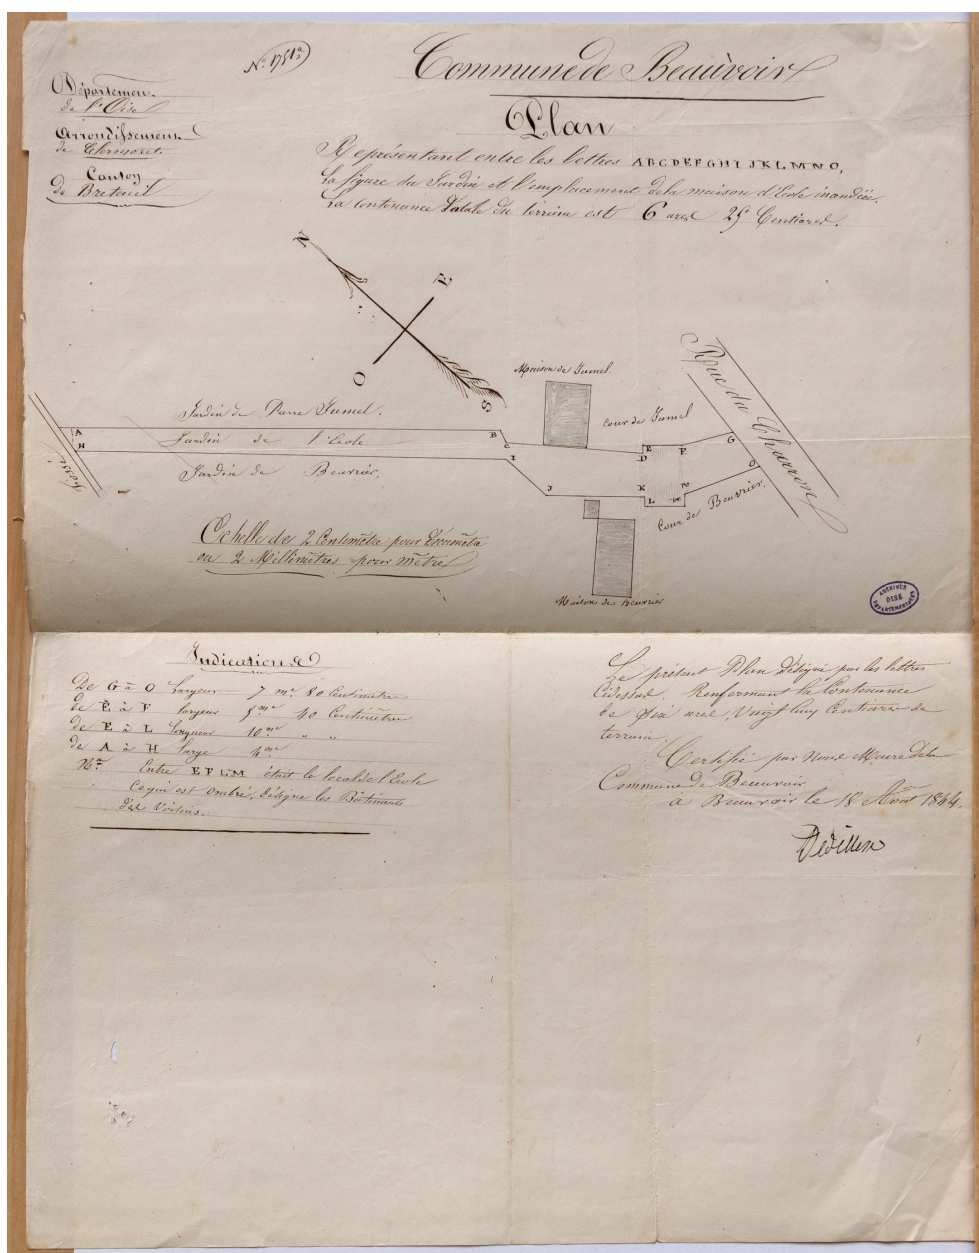 Nº 1751ª
Commune de Beauvoir
Département
de l'Oise
Arrondissement
de Clermont
Canton
de Breteuil
Plan
Représentant entre les lettres A B C D E F G H I J K L M N O,
la figure du Jardin et l'emplacement de la maison d'Ecole incendiée.
La Contenance Totale du terrain est 6 ares 25 Centiares.
N
E
O
S
Maison de Jumel
Rue du Charron
Jardin de Pierre Jumel.
Cour de Jumel
A
B
C
D
E
F
G
H
Jardin de l'Ecole
I
J
K
L
M
N
O
fossé
Jardin de Beuvrier.
Cour de Beuvrier.
Echelle de 2 Centimètre pour Décamètre
ou 2 Millimètres pour mètre
Maison de Beuvrier
ARCHIVES
OISE
DÉPARTEMENTALES
Indications
De G à O largeur 7 m. 80 Centimètre
de E à F largeur 5 me 40 Centimètre
de E à L longueur 10 me " "
de A à H large 4 me
Nta Entre E F L M était le local de l'Ecole
Ce qui est ombré, désigne les Bâtiments
des Voisins.
Le présent Plan désigné par les lettres
Cidessus, Renfermant la Contenance
de Six ares, Vingt Cinq Centiares de
terrain.
Certifié par Nous Maire de la
Commune de Beauvoir
à Beauvoir le 18 Août 1844.